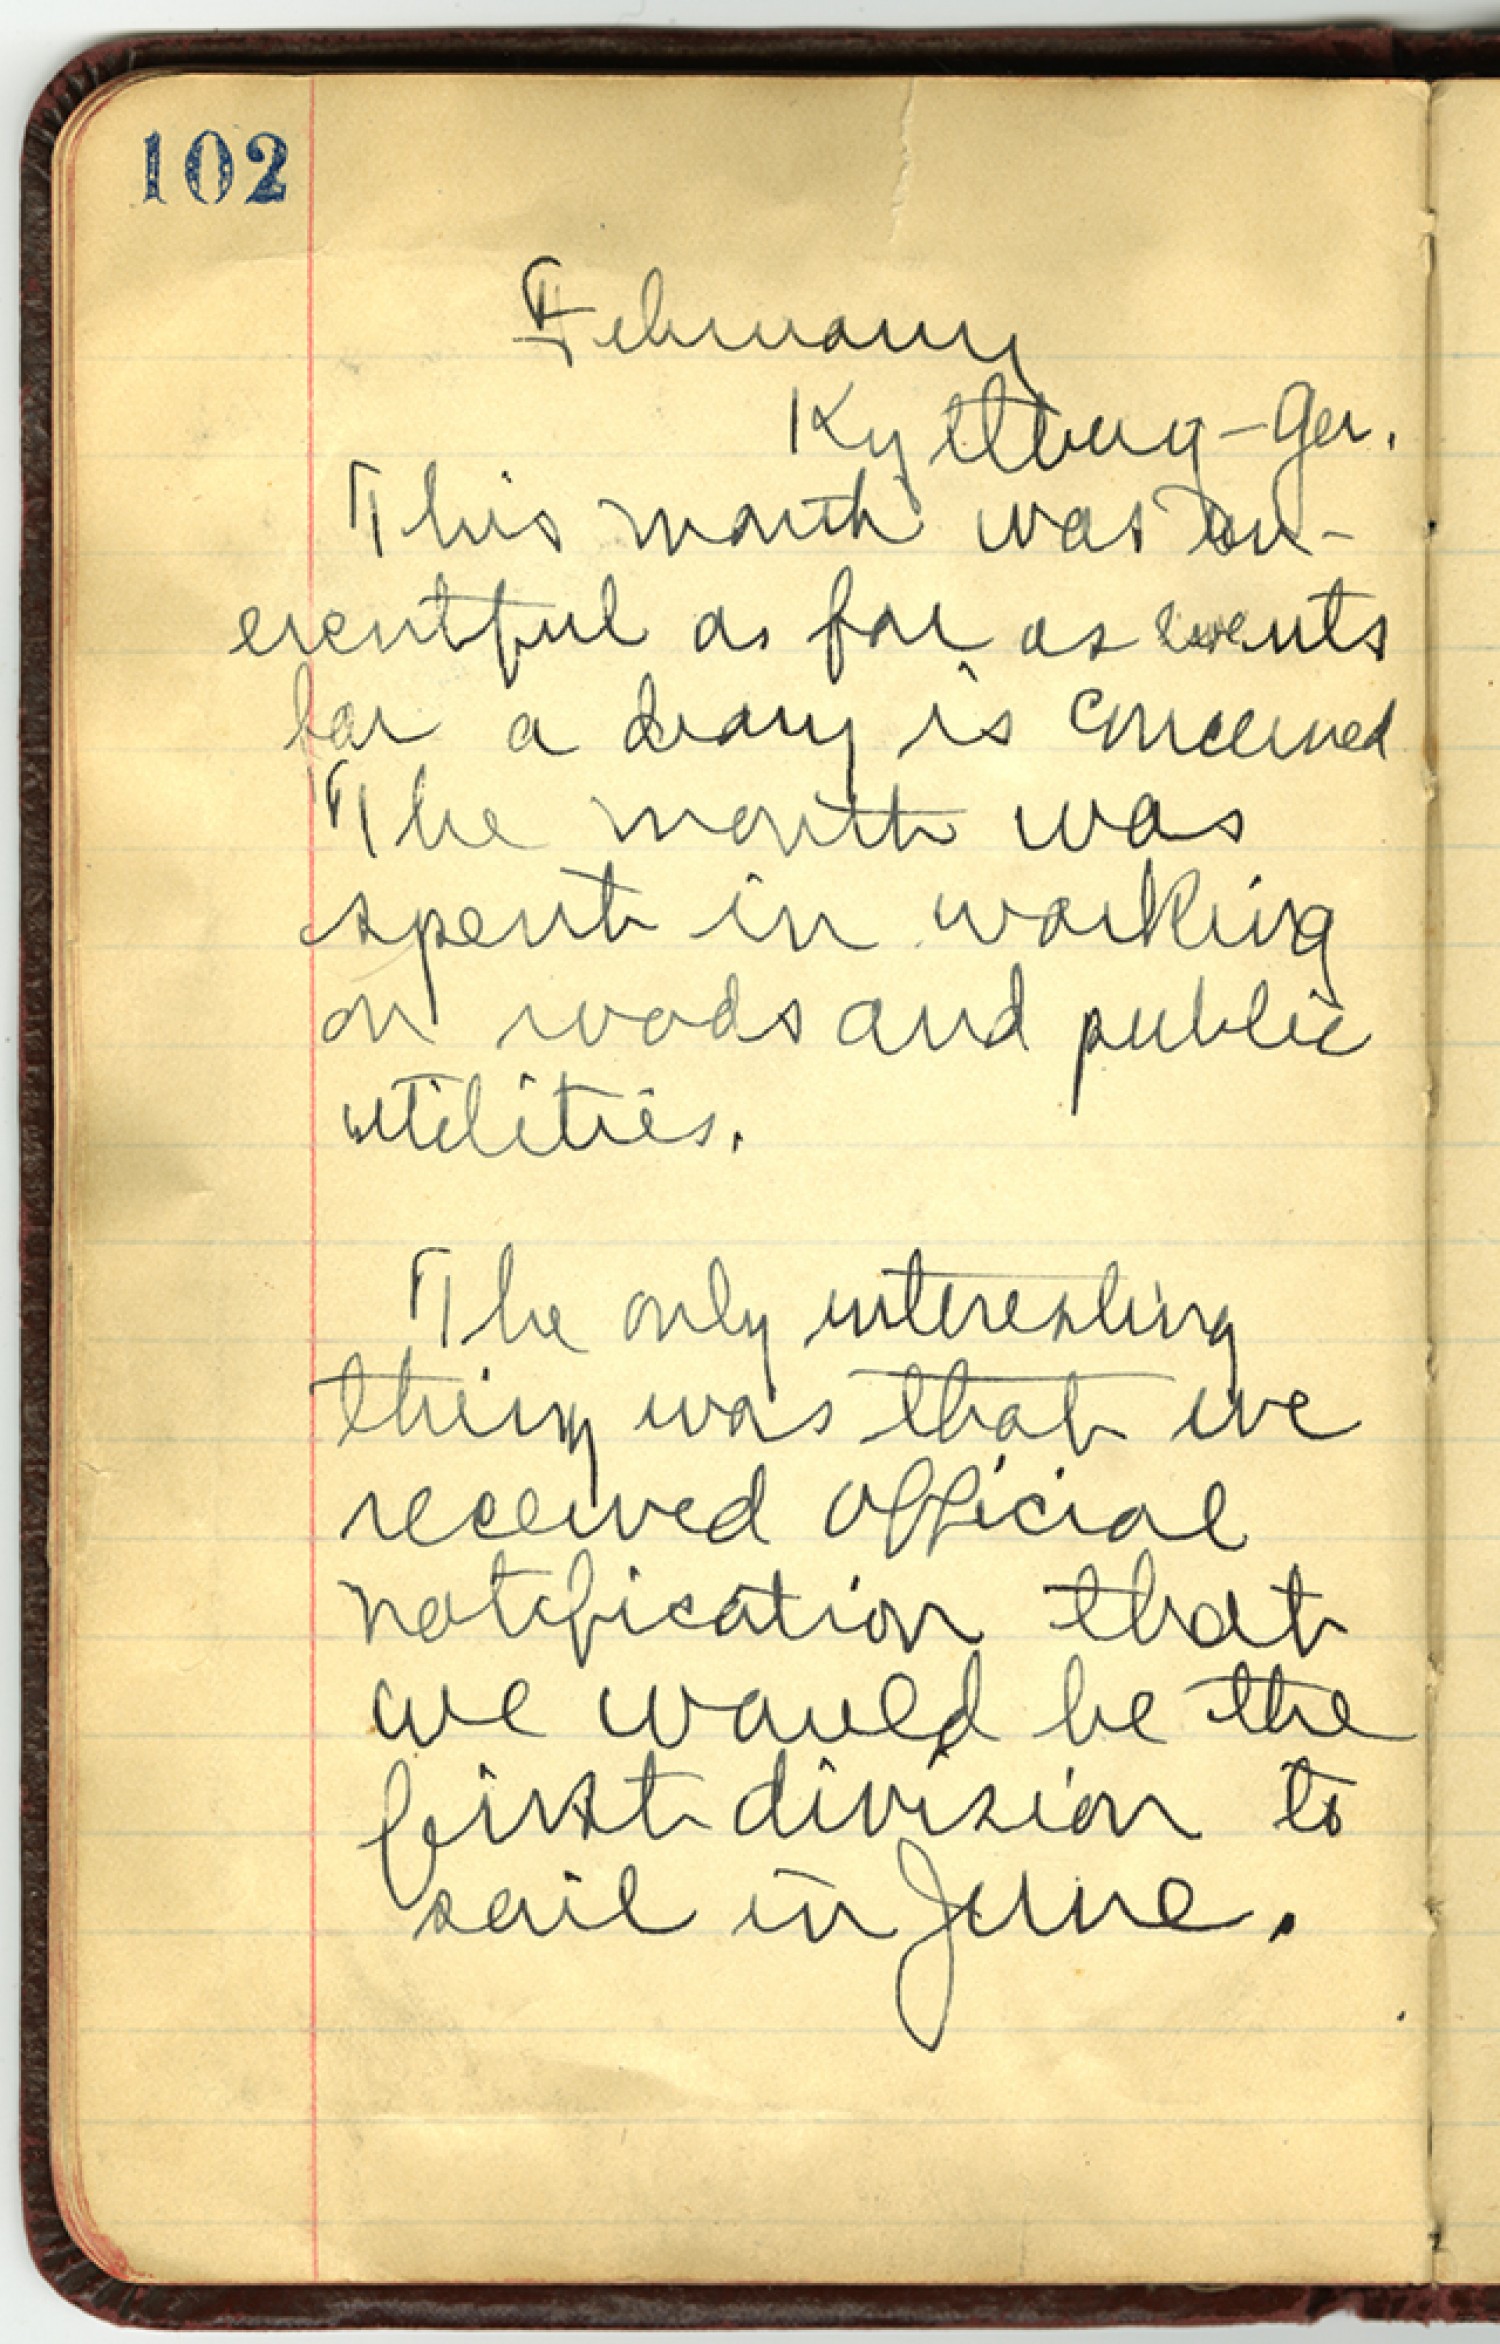 102
February
Kyllburg - Ger.
This month was un-
eventful as far as events
for a diary is concerned
The month was
spent in working
on roads and public
utilities.
The only interesting
thing was that we
received official
notification that
we would be the
first division to
sail in June.